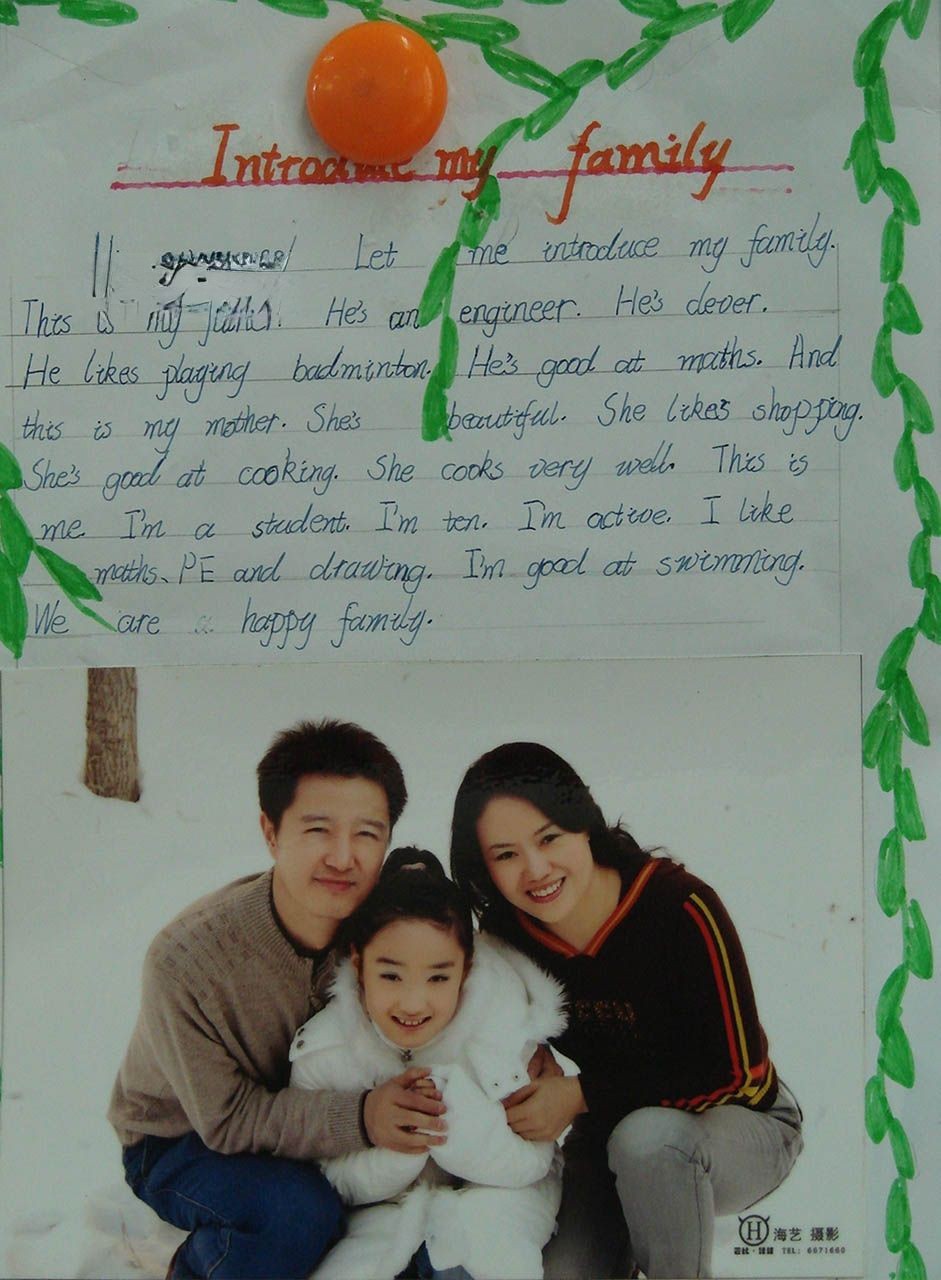 Introduce my family
Let me introduce my family.
This is my father. He's an engineer. He's clever.
He likes playing badminton. He's good at maths. And
this is my mother. She's beautiful. She likes shopping.
She's good at cooking. She cooks very well. This is
me. I'm a student. I'm ten. I'm active. I like
maths、PE and drawing. I'm good at swimming.
We are a happy family.
H 海艺 摄影
TEL: 6671660